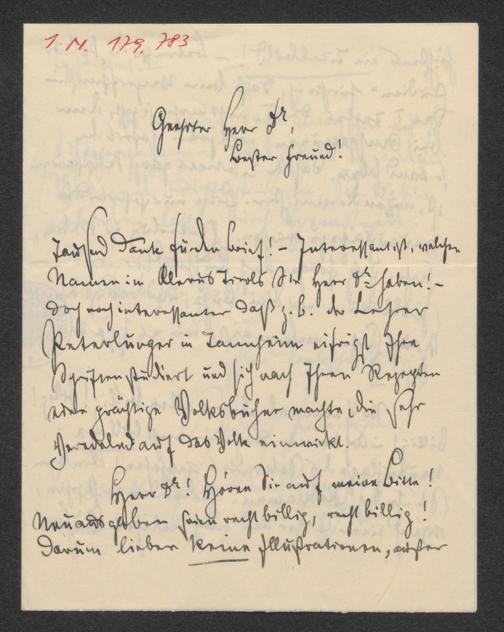 I. N. 179.783
Geehrter Herr Dr,
bester Freund!
Tausend Dank für den Brief! – Interessant ist, welchen
Namen in Klerus Tirols Sie Herr Dr haben! –
doch noch interessanter daß z. b. der Lehrer
Peterlunger in Tannheim eifrigst Ihre
Schriften studiert und sich nach Ihren Rezepten
eine prächtige Volksbücherei machte, die sehr
veredelnd auf das Volk einwirkt.
Herr Dr! Hören Sie auf meine Bitte!
Neuausgaben seien recht billig, recht billig!
Darum lieber keine Illustrationen, außer